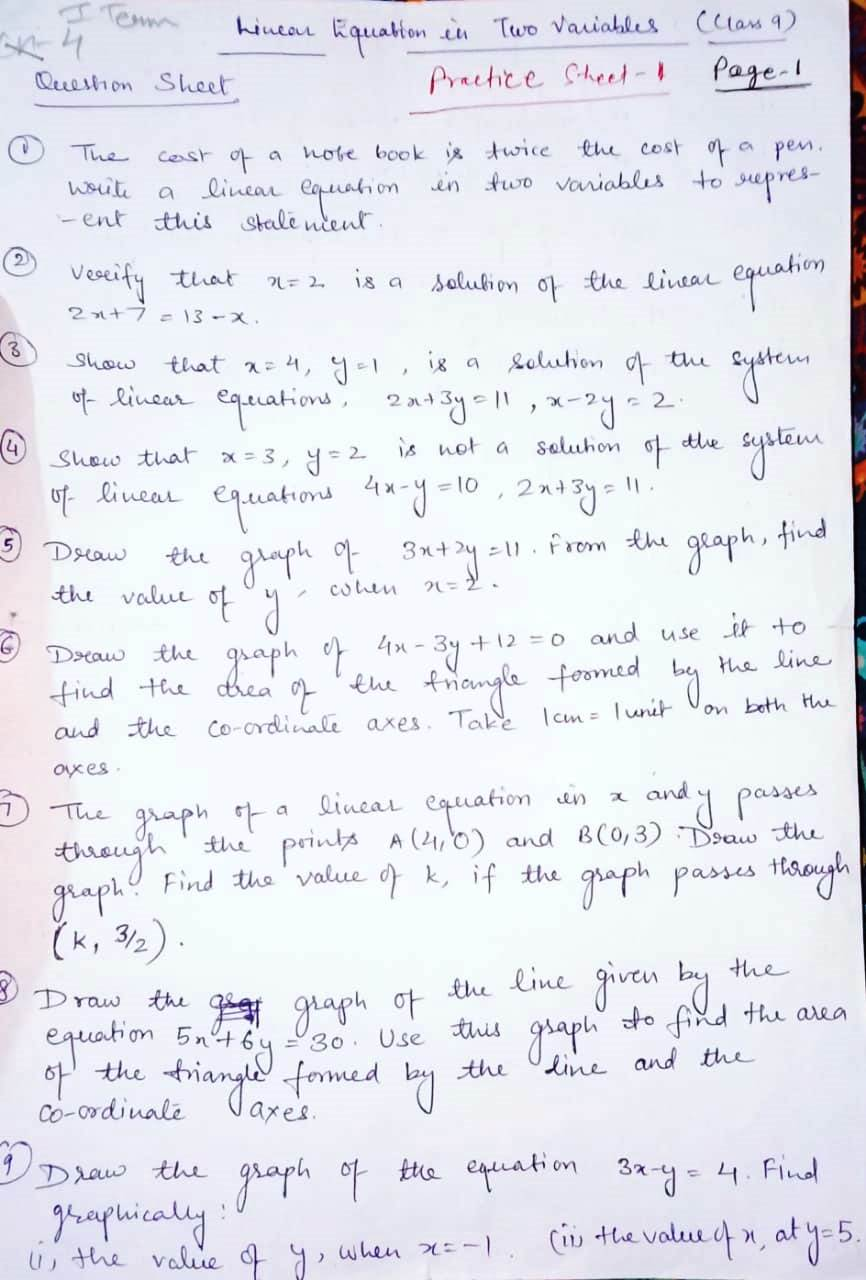 I Term
Ch-4
Linear Equation in Two Variables (Class 9)
Question Sheet Practice Sheet-1 Page-1
① The cost of a note book is twice the cost of a pen.
Write a linear equation in two variables to repres-
-ent this statement.
② Verify that x=2 is a solution of the linear equation
2x+7 = 13-x.
③ Show that x=4, y=1, is a solution of the system
of linear equations, 2x+3y=11, x-2y=2.
④ Show that x=3, y=2 is not a solution of the system
of linear equations 4x-y=10, 2x+3y=11.
⑤ Draw the graph of 3x+2y=11. From the graph, find
the value of y, when x=2.
⑥ Draw the graph of 4x-3y+12=0 and use it to
find the area of the triangle formed by the line
and the co-ordinate axes. Take 1cm = 1unit on both the
axes.
⑦ The graph of a linear equation in x and y passes
through the points A(4,0) and B(0,3). Draw the
graph. Find the value of k, if the graph passes through
(k, 3/2).
⑧ Draw the graph of the line given by the
equation 5x+6y=30. Use this graph to find the area
of the triangle formed by the line and the
co-ordinate axes.
⑨ Draw the graph of the equation 3x-y=4. Find
graphically:
(i) the value of y, when x=-1. (ii) the value of x, at y=5.